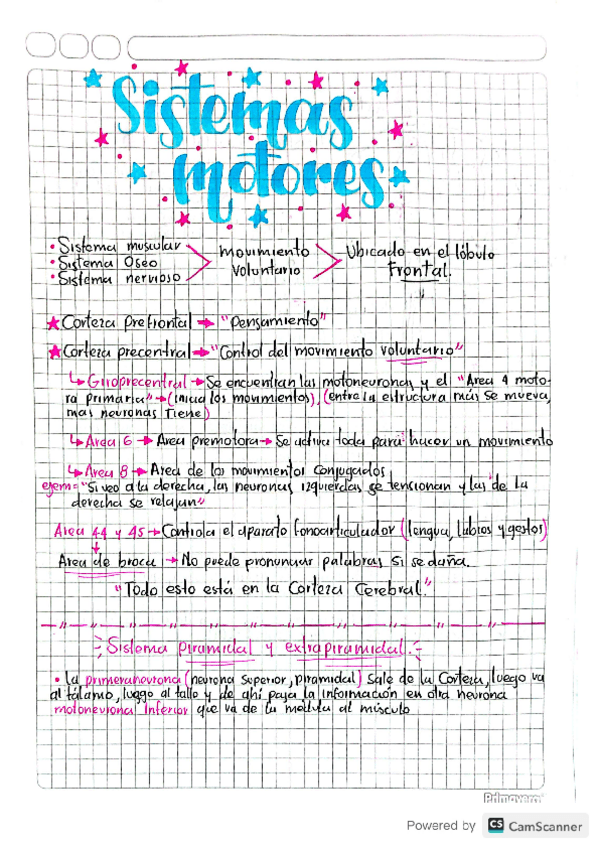 Sistemas
motores
• Sistema muscular
• Sistema Oseo
• Sistema nervioso
Movimiento
Voluntario
Ubicado en el lóbulo
Frontal.
★ Corteza Prefrontal → "Pensamiento"
★ Corteza precentral → "Control del movimiento voluntario"
↳ Giroprecentral → Se encuentran las motoneuronas y el "Area 4 moto-
ra primaria" → (inicia los movimientos), (entre la estructura más se mueva,
mas neuronas tiene)
↳ Area 6 → Area premotora → Se activa toda para hacer un movimiento
↳ Area 8 → Area de los movimientos conjugados
ejem = "Si veo a la derecha, las neuronas izquierdas se tensionan y las de la
derecha se relajan"
Area 44 y 45 → Controla el aparato fonoarticulador (lengua, labios y gestos)
Area de broca → No puede pronunciar palabras si se daña.
"Todo esto está en la Corteza Cerebral."
Sistema piramidal y extrapiramidal.
• La primera neurona (neurona superior, piramidal) sale de la Corteza, luego va
al tálamo, luego al tallo y de ahi pasa la información en otra neurona
motoneurona Inferior que va de la medula al músculo
Primavera
Powered by CS CamScanner